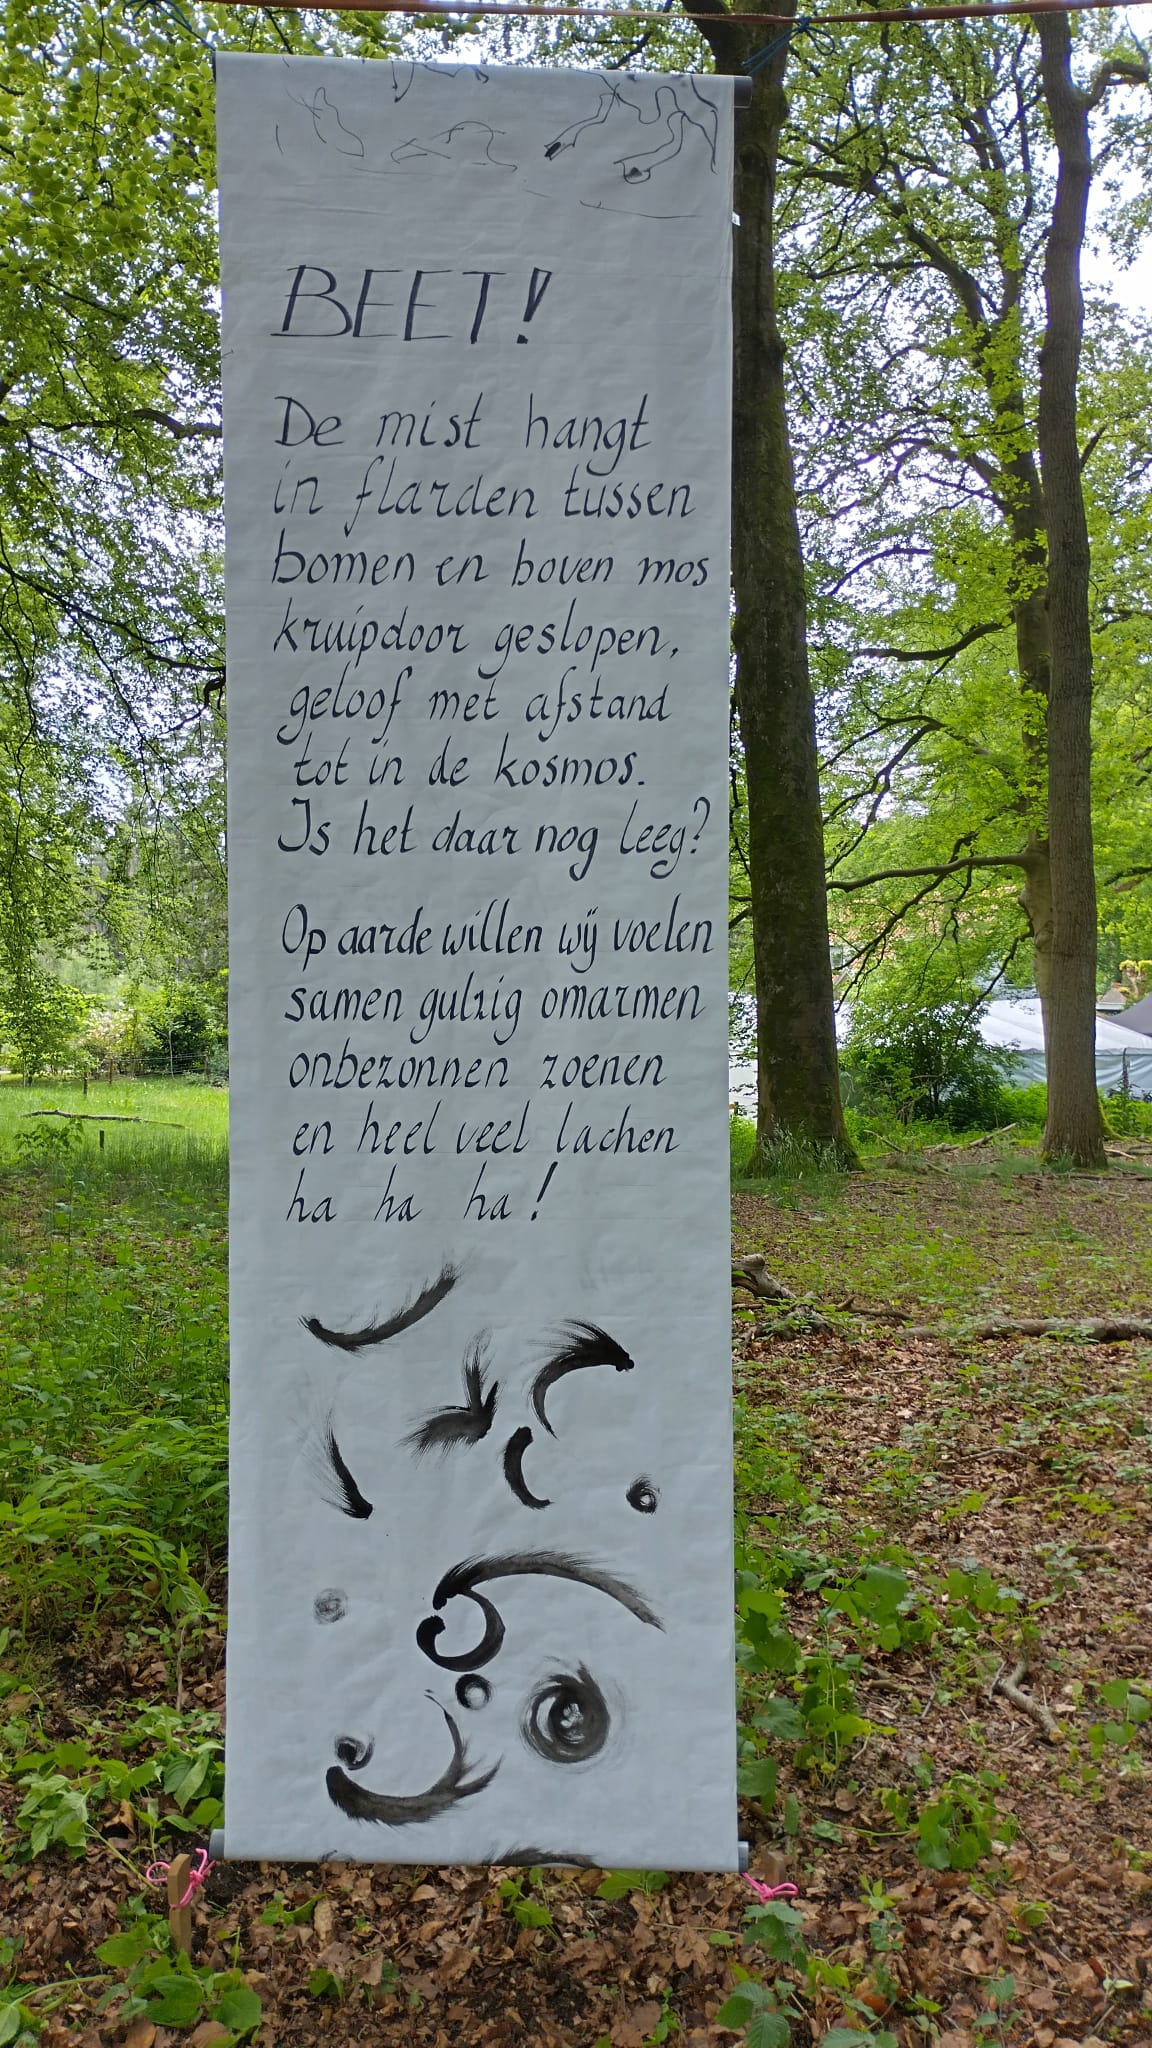 BEET!
De mist hangt
in flarden tussen
bomen en boven mos
kruipdoor geslopen,
geloof met afstand
tot in de kosmos.
Is het daar nog leeg?
Op aarde willen wij voelen
samen gulzig omarmen
onbezonnen zoenen
en heel veel lachen
ha ha ha!